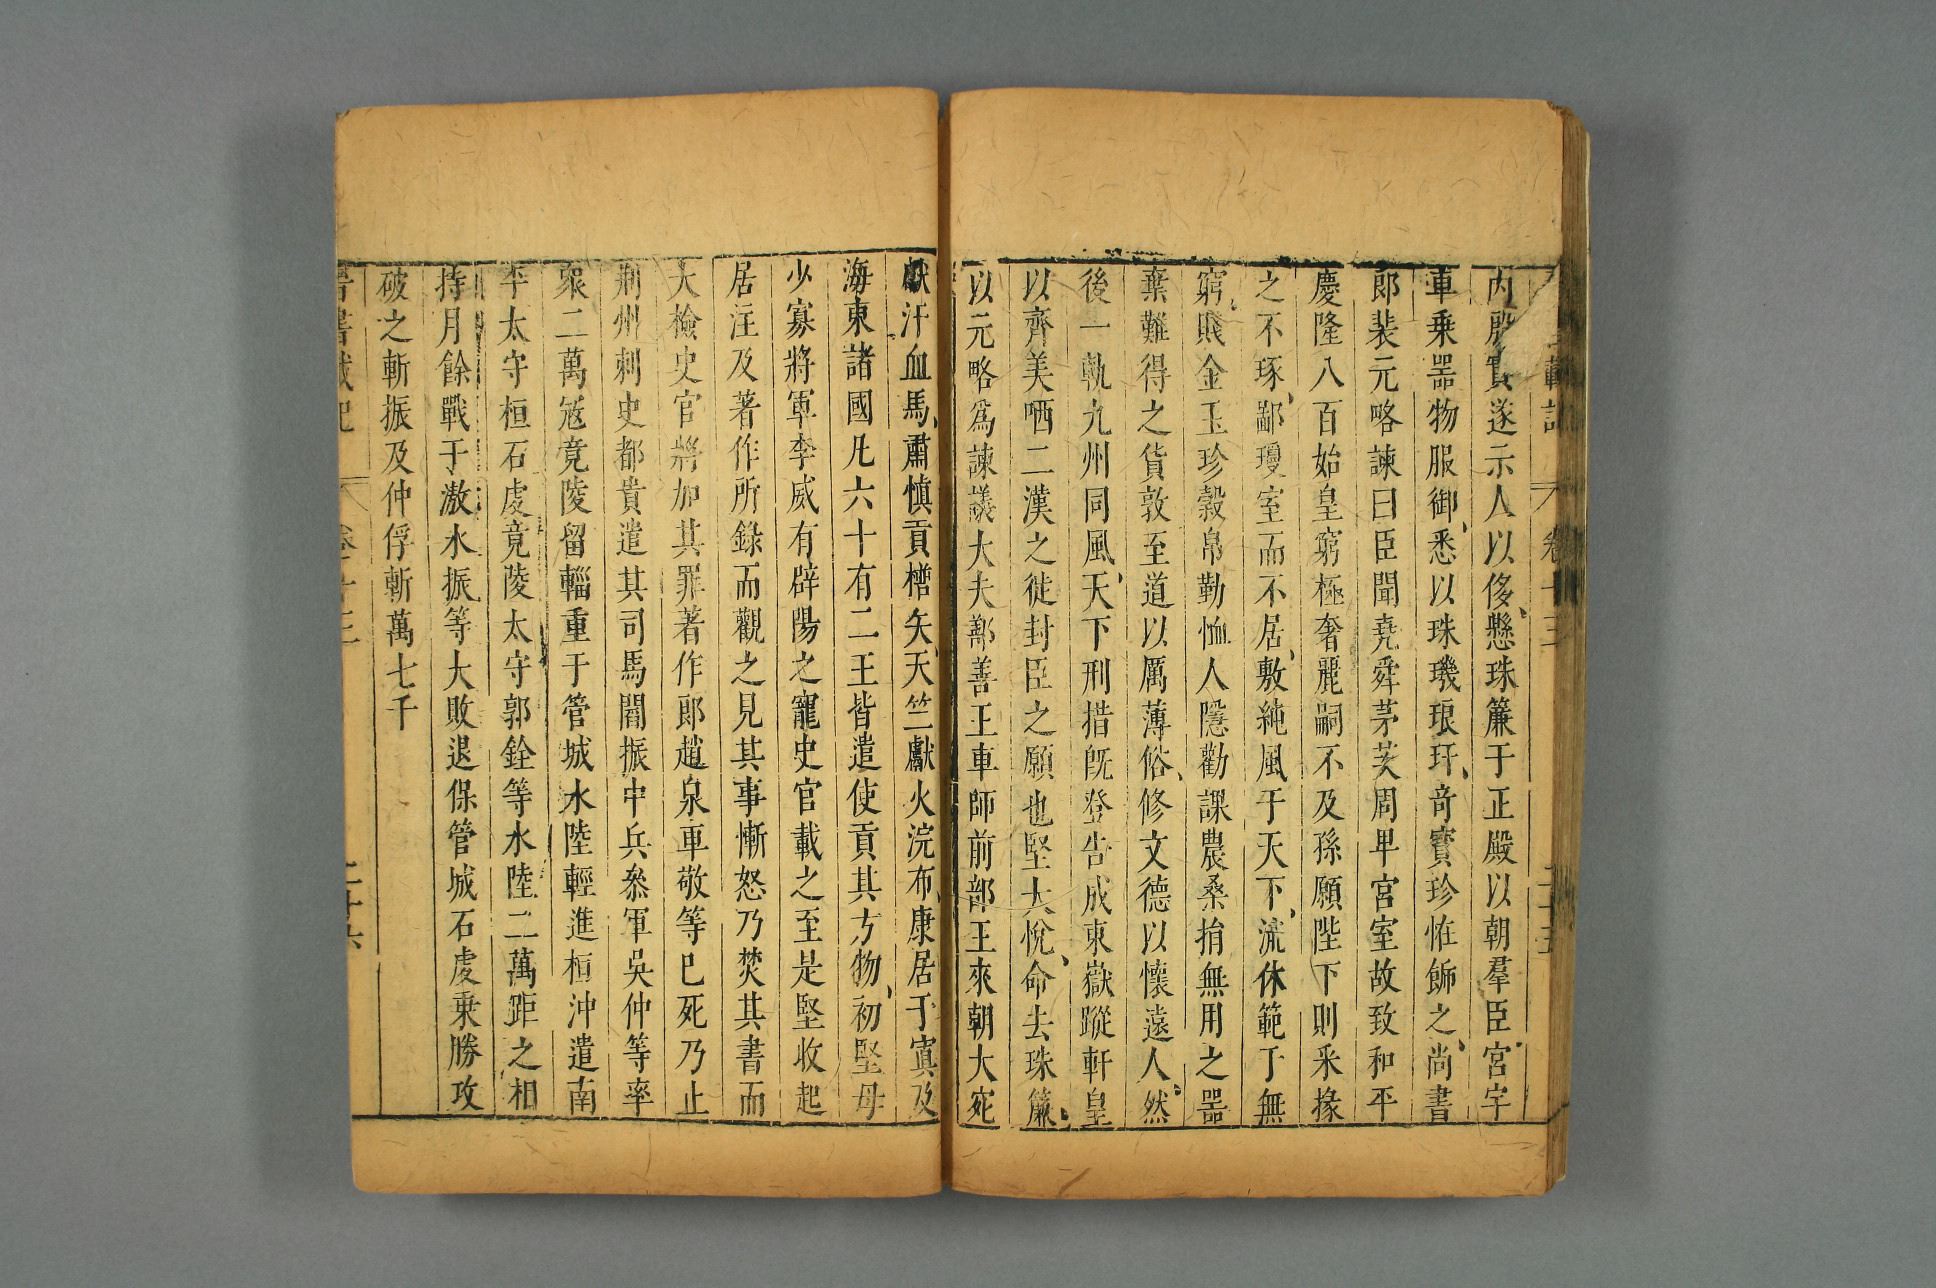 載記 卷十三 二十五
內殷實遂示人以侈懸珠簾于正殿以朝羣臣宮宇
車乗器物服御悉以珠璣琅玕竒寶珍恠飾之尚書
郎裴元略諫曰臣聞堯舜茅茨周卑宮室故致和平
慶隆八百始皇窮極奢麗嗣不及孫願陛下則采椽
之不琢鄙瓊室而不居敷純風于天下流休範于無
窮賤金玉珍穀帛勤恤人隱勸課農桑捐無用之器
棄難得之貨敦至道以厲薄俗修文德以懷遠人然
後一軌九州同風天下刑措旣登告成東嶽蹤軒皇
以齊美哂二漢之徙封臣之願也堅大悅命去珠簾
以元略爲諫議大夫鄯善王車師前部王來朝大宛
獻汗血馬肅愼貢楛矢天竺獻火浣布康居于寘及
海東諸國凡六十有二王皆遣使貢其方物初堅母
少寡將軍李威有辟陽之寵史官載之至是堅收起
居注及著作所錄而觀之見其事慚怒乃焚其書而
大檢史官將加其罪著作郎趙泉車敬等已死乃止
荆州刺史都貴遣其司馬閻振中兵叅軍吳仲等率
衆二萬宼竟陵留輜重于管城水陸輕進桓沖遣南
平太守桓石虔竟陵太守郭銓等水陸二萬距之相
持月餘戰于滶水振等大敗退保管城石虔乗勝攻
破之斬振及仲俘斬萬七千
晋書載記 卷十三 二十六